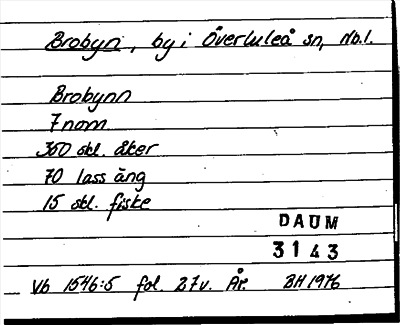 Brobyn, by i Överluleå sn, Nb.l.
Brobynn
7 nom
350 skl. åker
70 lass äng
15 skl. fiske
DAUM
3143
Vb 1546:5 fol. 27v. År. BH 1976